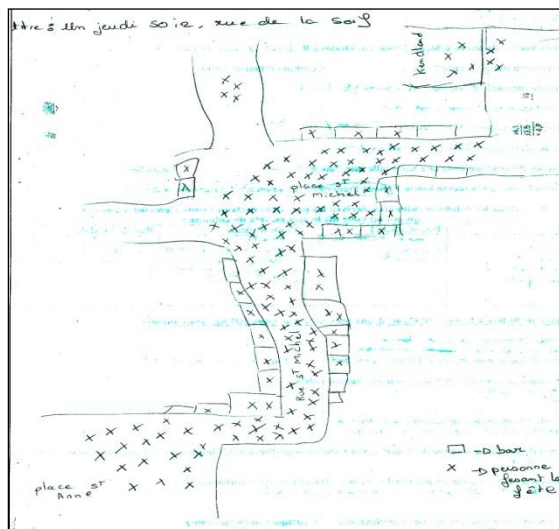 titre : un jeudi soir, rue de la soif
Kenland
place st
michel
Rue st michel
place st
Anne
-D bar
x -D personne
fesant la
fête